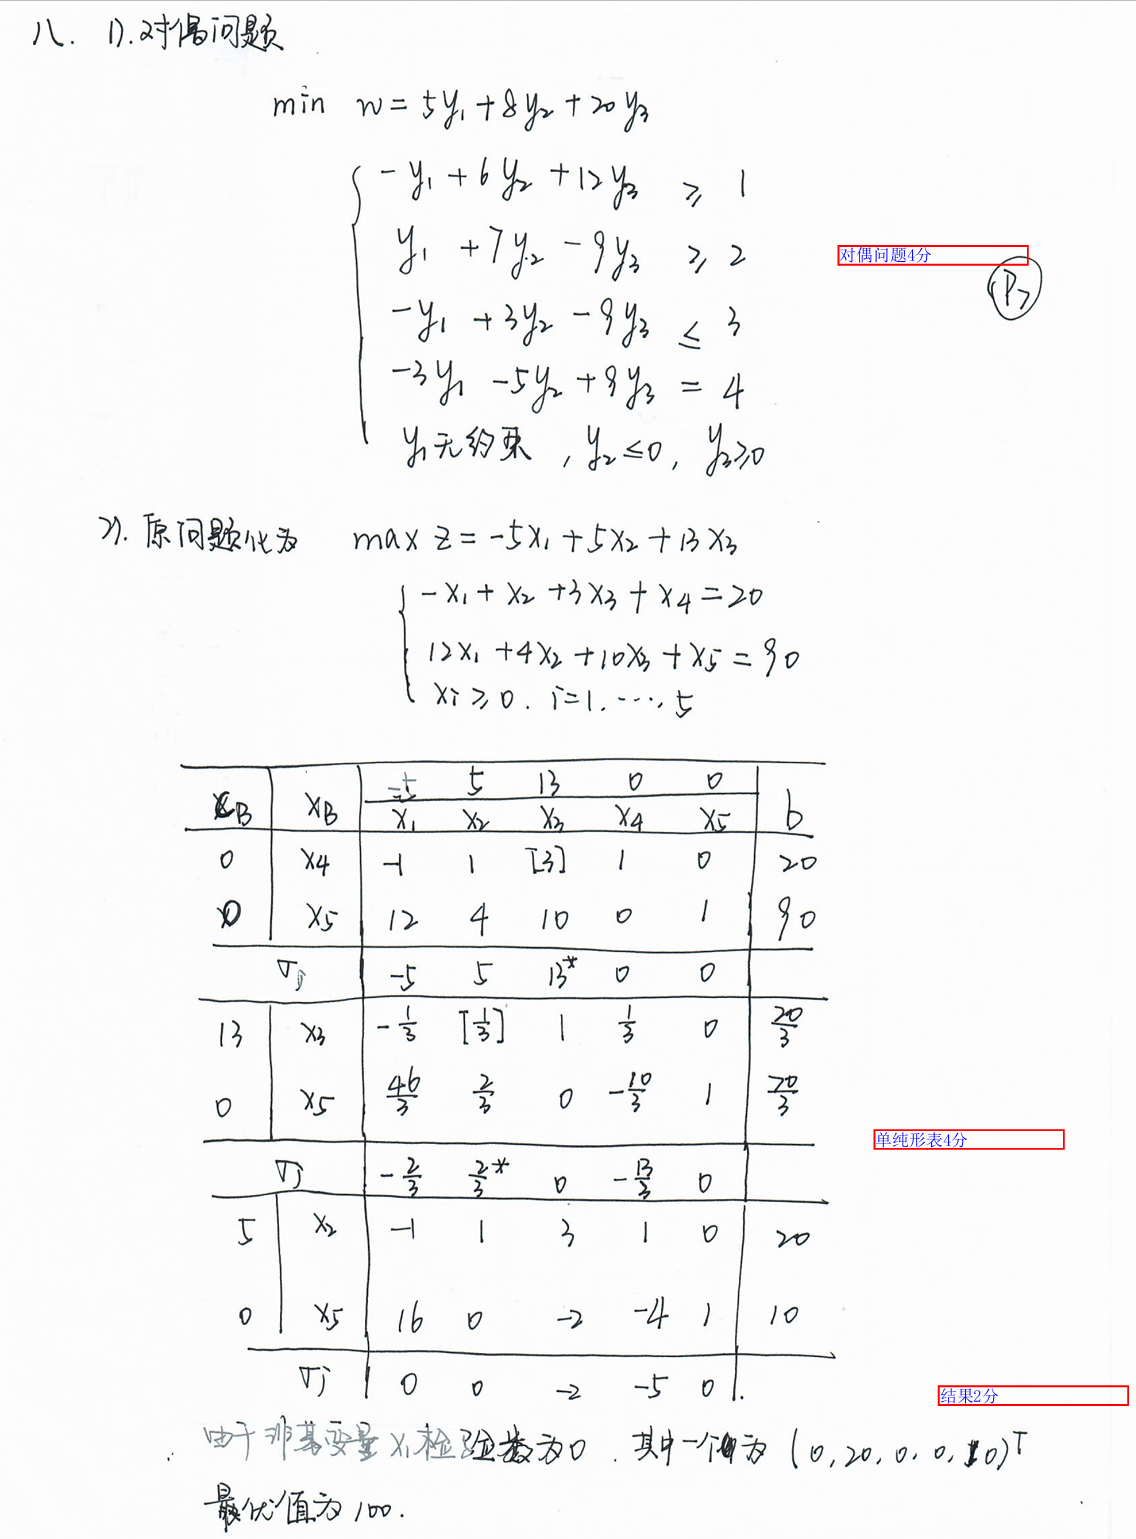 八. 1). 对偶问题
min w = 5y₁ + 8y₂ + 20y₃
-y₁ + 6y₂ + 12y₃ ≥ 1
y₁ + 7y₂ - 9y₃ ≥ 2
对偶问题4分
(P7
-y₁ + 3y₂ - 9y₃ ≤ 3
-3y₁ -5y₂ + 9y₃ = 4
y₁无约束, y₂≤0, y₃≥0
2). 原问题化为 max z = -5x₁ + 5x₂ + 13x₃
-x₁ + x₂ + 3x₃ + x₄ = 20
12x₁ + 4x₂ + 10x₃ + x₅ = 90
xi ≥ 0. i=1. ..., 5
-5 5 13 0 0
CB XB x₁ x₂ x₃ x₄ x₅ b
0 x₄ -1 1 [3] 1 0 20
0 x₅ 12 4 10 0 1 90
σj -5 5 13* 0 0
13 x₃ -1/3 [1/3] 1 1/3 0 20/3
0 x₅ 46/3 2/3 0 -10/3 1 70/3
单纯形表4分
σj -2/3 2/3* 0 -13/3 0
5 x₂ -1 1 3 1 0 20
0 x₅ 16 0 -2 -4 1 10
σj 0 0 -2 -5 0
结果2分
由于非基变量x₁检验数为0. 其中一个为 (0, 20, 0, 0, 10)ᵀ
最优值为100.